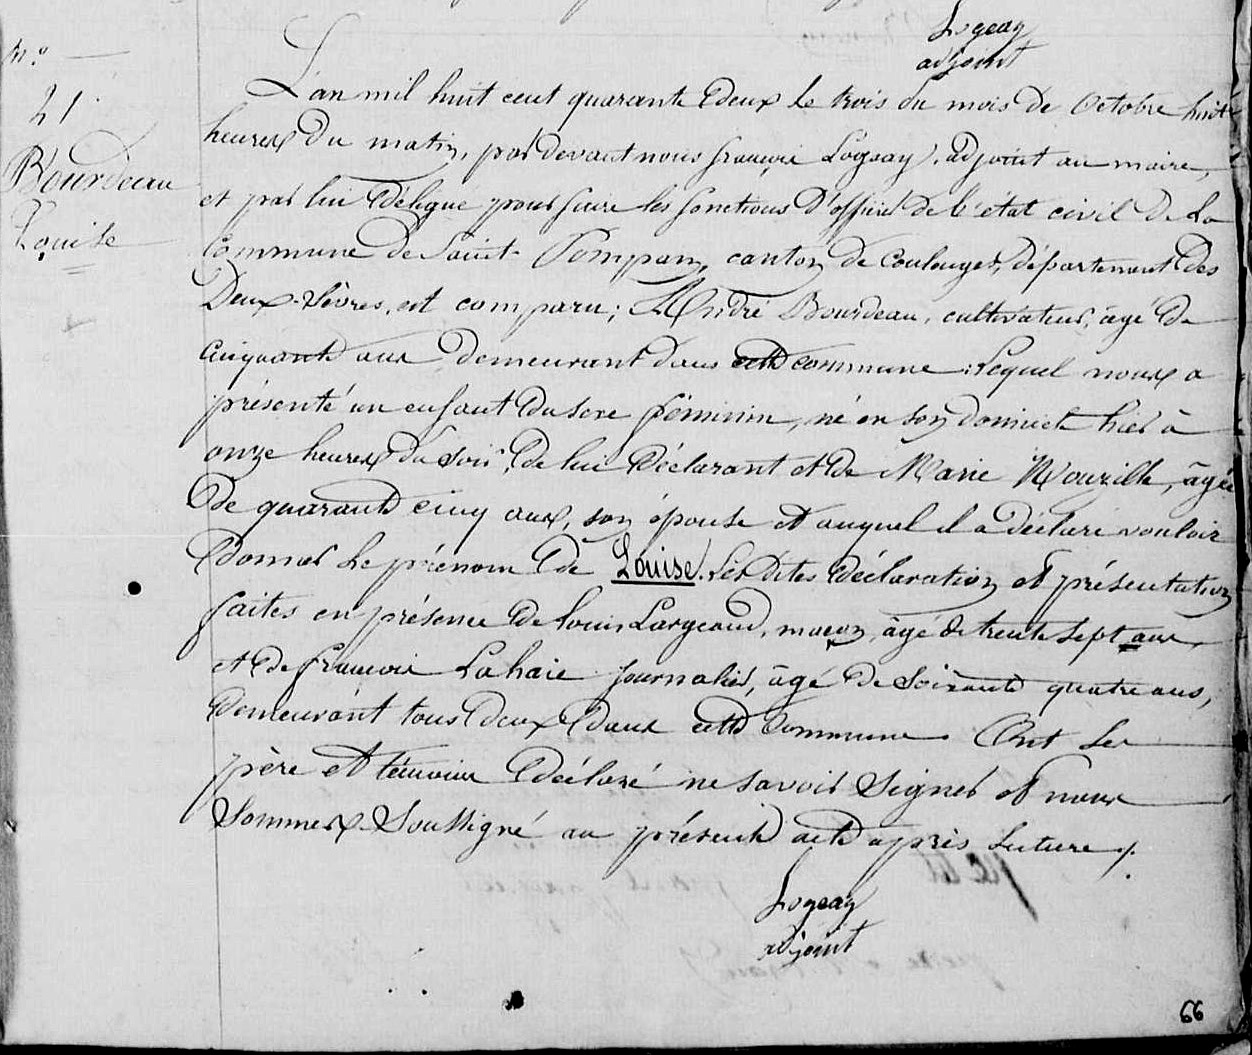 Logeay
adjoint
N.o
21.
Bourdeau
Louise
L'an mil huit cent quarante deux le trois du mois de Octobre huit
heures du matin, par devant nous françois Logeay, adjoint au maire,
et par lui délégué pour faire les fonctions d'officier de l'état civil de la
Commune de Saint-Pompain, canton de Coulonges, département des
Deux-Sèvres, est comparu; André Bourdeau, cultivateur, âgé de
cinquante ans demeurant dans cette commune; Lequel nous a
présenté un enfant du sexe féminin, né en son domicile hier à
onze heures du soir, de lui déclarant et de Marie Mouzille, âgée
de quarante cinq ans, son épouse et auquel il a déclaré vouloir
donner le prénom de Louise. Les dites déclaration et présentation
faites en présence de louis Largeaud, maçon, âgé de trente sept ans,
et de françois Lahaie journalier, âgé de soixante quatre ans,
demeurant tous deux dans cette commune. Ont les
père et témoins déclaré ne savoir signer et nous
Sommes Soussigné au présent acte après lecture ./.
Logeay
adjoint
66